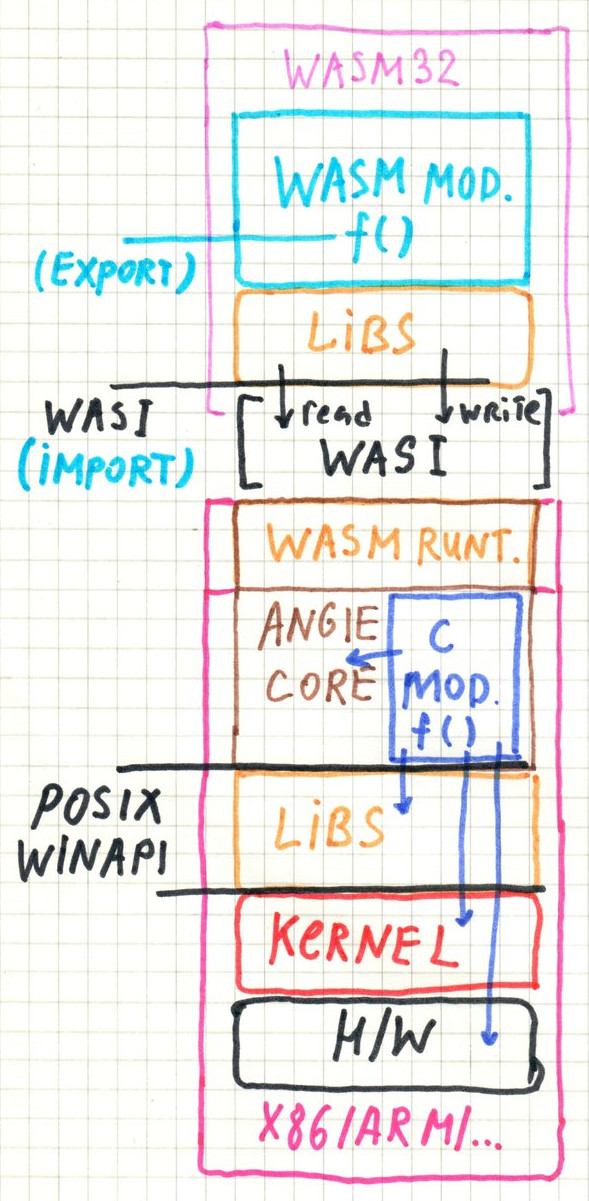 WASM32
WASM MOD.
f()
(EXPORT)
LiBS
read write
WASI
(iMPORT)
WASI
WASM RUNT.
ANGIE
CORE
C
MOD.
f()
POSIX
WINAPI
LiBS
KeRNEL
H/W
X86/ARM/...